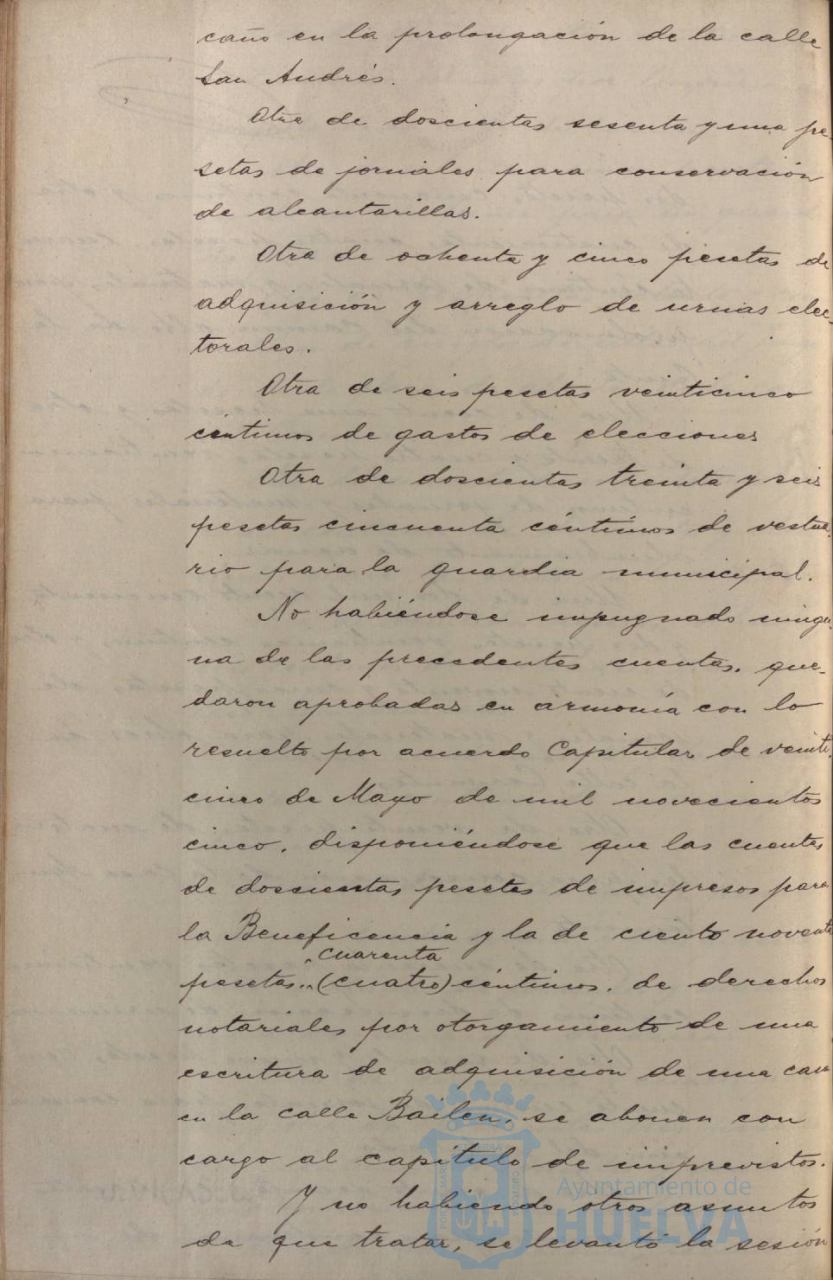 caño en la prolongación de la calle
San Andrés.
Otra de doscientas sesenta y una pe-
setas de jornales para conservación
de alcantarillas.
Otra de ochenta y cinco pesetas de
adquisición y arreglo de urnas elec-
torales.
Otra de seis pesetas veinticinco
céntimos de gastos de elecciones
Otra de doscientas treinta y seis
pesetas cincuenta céntimos de vestua-
rio para la guardia municipal.
No habiéndose impugnado ningu-
na de las precedentes cuentas, que-
daron aprobadas en armonía con lo
resuelto por acuerdo Capitular de veinti-
cinco de Mayo de mil novecientos
cinco, disponiéndose que las cuentas
de doscientas pesetas de impresos para
la Beneficencia y la de ciento noventa
cuarenta
pesetas "(cuatro) céntimos, de derechos
notariales por otorgamiento de una
escritura de adquisición de una casa
en la calle Bailen, se abonen con
cargo al capítulo de imprevistos.
Y no habiendo otros asuntos
de que tratar, se levantó la sesión
Ayuntamiento de
HUELVA